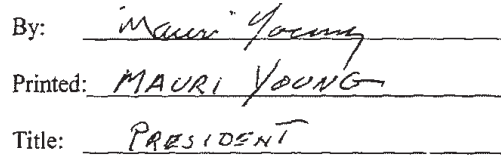 By: Mauri Young
Printed: MAURI YOUNG
Title: PRESIDENT